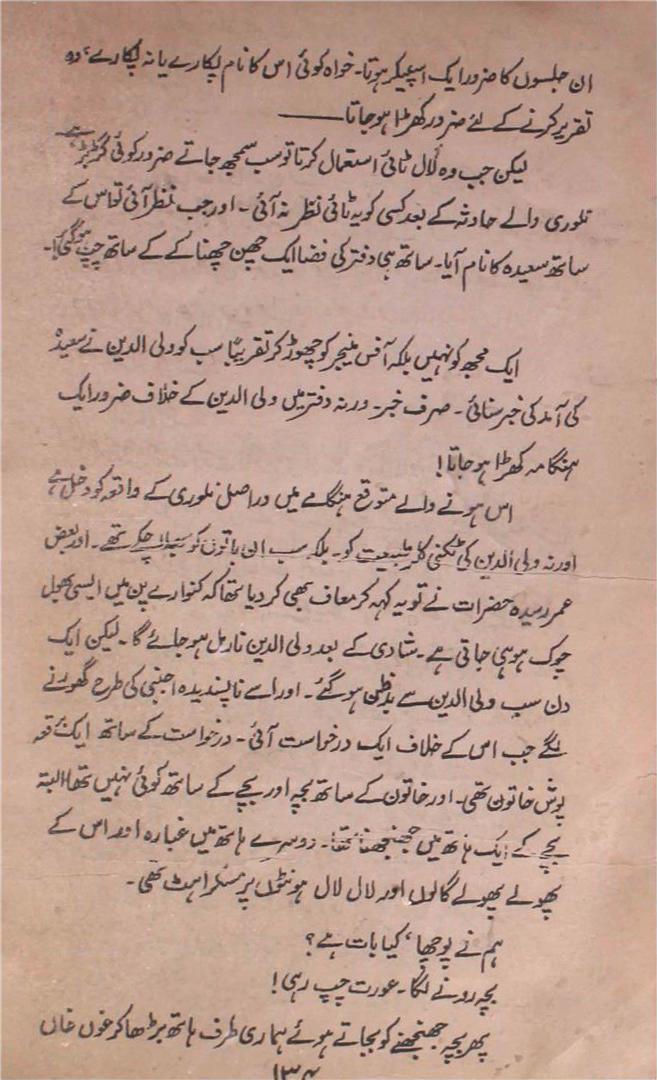 ان جلسوں کا ضرور ایک اسپیکر ہوتا۔ خواہ کوئی اس کا نام پکارے یا نہ پکارے، وہ
تقریر کرنے کے لئے ضرور کھڑا ہو جاتا ——
لیکن جب وہ لال ٹائی استعمال کرتا تو سب سمجھ جاتے ضرور کوئی گڑبڑ ہے
نلوری والے حادثہ کے بعد کسی کو یہ ٹائی نظر نہ آئی۔ اور جب نظر آئی تو اس کے
ساتھ سعیدہ کا نام آیا۔ ساتھ ہی دفتر کی فضا ایک چھن چھناکے کے ساتھ چپ ہو گئی۔
ایک مجھ کو نہیں بلکہ آفس منیجر کو چھوڑ کر تقریباً سب کو ولی الدین نے سعیدہ
کی آمد کی خبر سنائی۔ صرف خبر۔ ورنہ دفتر میں ولی الدین کے خلاف ضرور ایک
ہنگامہ کھڑا ہو جاتا!
اس ہونے والے متوقع ہنگامے میں دراصل نلوری کے واقعہ کو دخل ہے
اور نہ ولی الدین کی ٹکنی کلر طبیعت کو۔ بلکہ سب ان باتوں کو بھلا چکے تھے۔ اور بعض
عمر رسیدہ حضرات نے تو یہ کہہ کر معاف بھی کر دیا تھا کہ کنوارے پن میں ایسی بھول
چوک ہو ہی جاتی ہے۔ شادی کے بعد ولی الدین نارمل ہو جائے گا۔ لیکن ایک
دن سب ولی الدین سے بدظن ہو گئے۔ اور اسے ناپسندیدہ اجنبی کی طرح گھورنے
لگے جب اس کے خلاف ایک درخواست آئی۔ درخواست کے ساتھ ایک برقعہ
پوش خاتون تھی۔ اور خاتون کے ساتھ بچہ اور بچے کے ساتھ کوئی نہیں تھا، البتہ
بچے کے ایک ہاتھ میں جھنجھنا تھا۔ دوسرے ہاتھ میں غبارہ اور اس کے
پھولے پھولے گالوں اور لال لال ہونٹوں پر مسکراہٹ تھی۔
ہم نے پوچھا، کیا بات ہے؟
بچہ رونے لگا۔ عورت چپ رہی!
پھر بچہ جھنجھنے کو بجاتے ہوئے ہماری طرف ہاتھ بڑھا کر غوں غاں